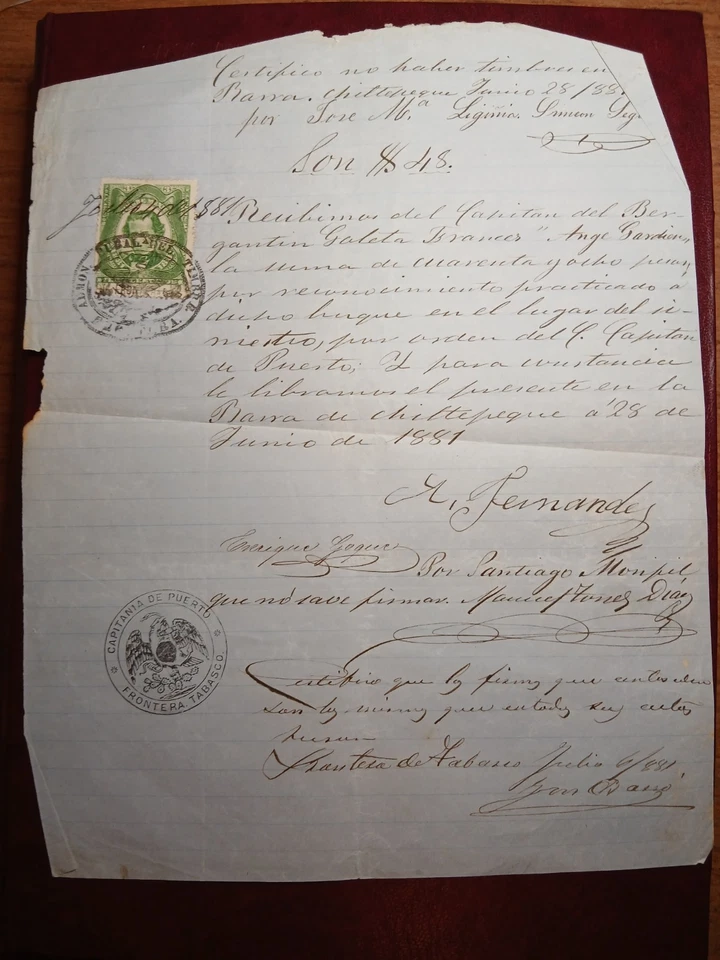 Certifico no haber timbres en
Barra. Chiltepeque Junio 28/88
por Jose M.ª
Son $ 48.
1881
Recibimos del Capitan del Ber-
gantin Goleta Frances "Ange Gardien,
la suma de cuarenta y ocho pesos
por reconocimiento practicado a
dicho buque en el lugar del si-
niestro, por orden del C. Capitan
de Puerto; Y para constancia
le libramos el presente en la
Barra de Chiltepeque á 28 de
Junio de 1881
A. Fernandez
Enrique
Por Santiago Monpil
que no save firmar. Diaz
CAPITANIA DE PUERTO
FRONTERA, TABASCO.
Certifico que las firmas que anteceden
son las mismas que usan en todos sus actos
Frontera de Tabasco Julio 6/881